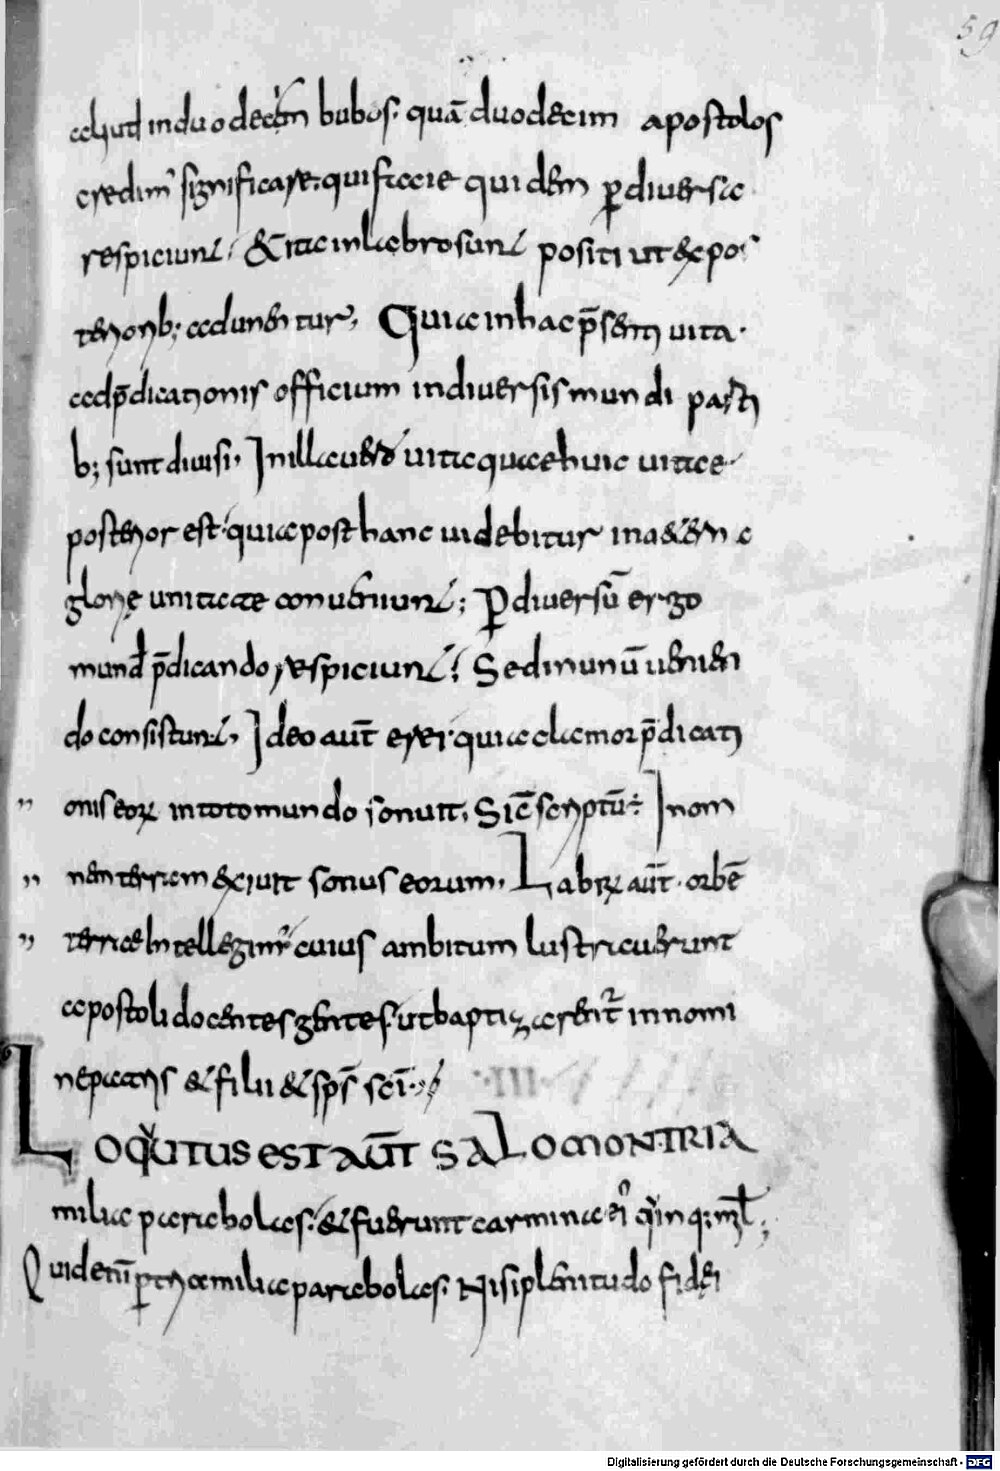 59
aliud induodecim bubos. quā duodecim apostolos
credim' significare. qui facie quidem p̄ diuersa
respiciunt. & ita in labro sunt positi ut ex pos
teriorib; adunentur. Quia in hac p̄senti uita.
ad p̄dicationis officium indiuersis mundi parti
b; sunt diuisi. In illa uero uita quae huic uitae
posterior est. quia post hanc uidebitur in aeterna
glorię unitate conueniunt; P diuersū ergo
mund p̄dicando respiciunt. Sed in unū uenien
do consistunt. Ideo aūt erei. quia clamor p̄dicati
onis eoꝝ in toto mundo sonuit. Sic̄ scriptū ÷ In om
nem terram exiuit sonus eorum. Labrꝝ aūt. orbē
terrae intellegim' cuius ambitum lustrauerunt
apostoli docentes gentes. ut baptizarent̄ in nomi
ne patris & filii & sp̄s sc̄i.
LOQUUTUS EST AUT̄ SALOMON. TRIA
milia parabolas. & fuerunt carmina ei' quinq; mil;
Quid enī p̄ tria milia parabolas. Nisi plenitudo fidei
Digitalisierung gefördert durch die Deutsche Forschungsgemeinschaft - DFG